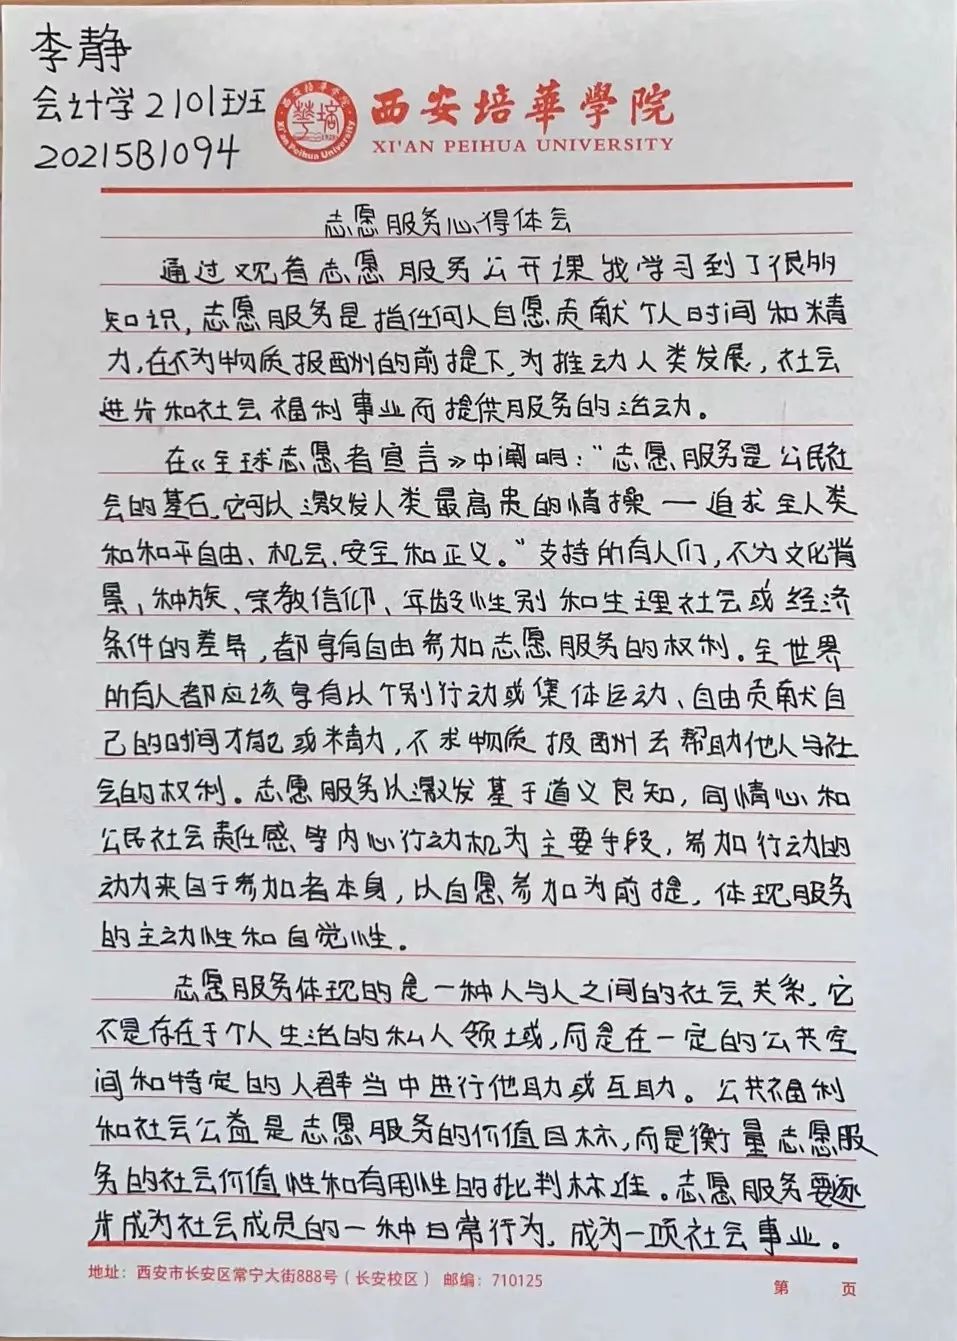 李静
会计学2101班
20215B1094
西安培華學院
XI'AN PEIHUA UNIVERSITY
志愿服务心得体会
通过观看志愿服务公开课我学习到了很多
知识,志愿服务是指任何人自愿贡献个人时间和精
力,在不为物质报酬的前提下,为推动人类发展,社会
进步和社会福利事业而提供服务的活动。
在《全球志愿者宣言》中阐明:“志愿服务是公民社
会的基石,它可以激发人类最高贵的情操——追求全人类
和和平自由、机会、安全和正义。”支持所有人们,不为文化背
景、种族、宗教信仰、年龄性别和生理社会或经济
条件的差异,都享有自由参加志愿服务的权利。全世界
所有人都应该享有以个别行动或集体运动、自由贡献自
己的时间才能或精力,不求物质报酬去帮助他人与社
会的权利。志愿服务以激发基于道义良知,同情心和
公民社会责任感等内心行动机为主要手段,参加行动的
动力来自于参加者本身,以自愿参加为前提,体现服务
的主动性和自觉性。
志愿服务体现的是一种人与人之间的社会关系,它
不是存在于个人生活的私人领域,而是在一定的公共空
间和特定的人群当中进行他助或互助。公共福利
和社会公益是志愿服务的价值目标,而是衡量志愿服
务的社会价值性和有用性的批判标准。志愿服务要逐
步成为社会成员的一种日常行为,成为一项社会事业。
地址:西安市长安区常宁大街888号(长安校区) 邮编:710125
第 页